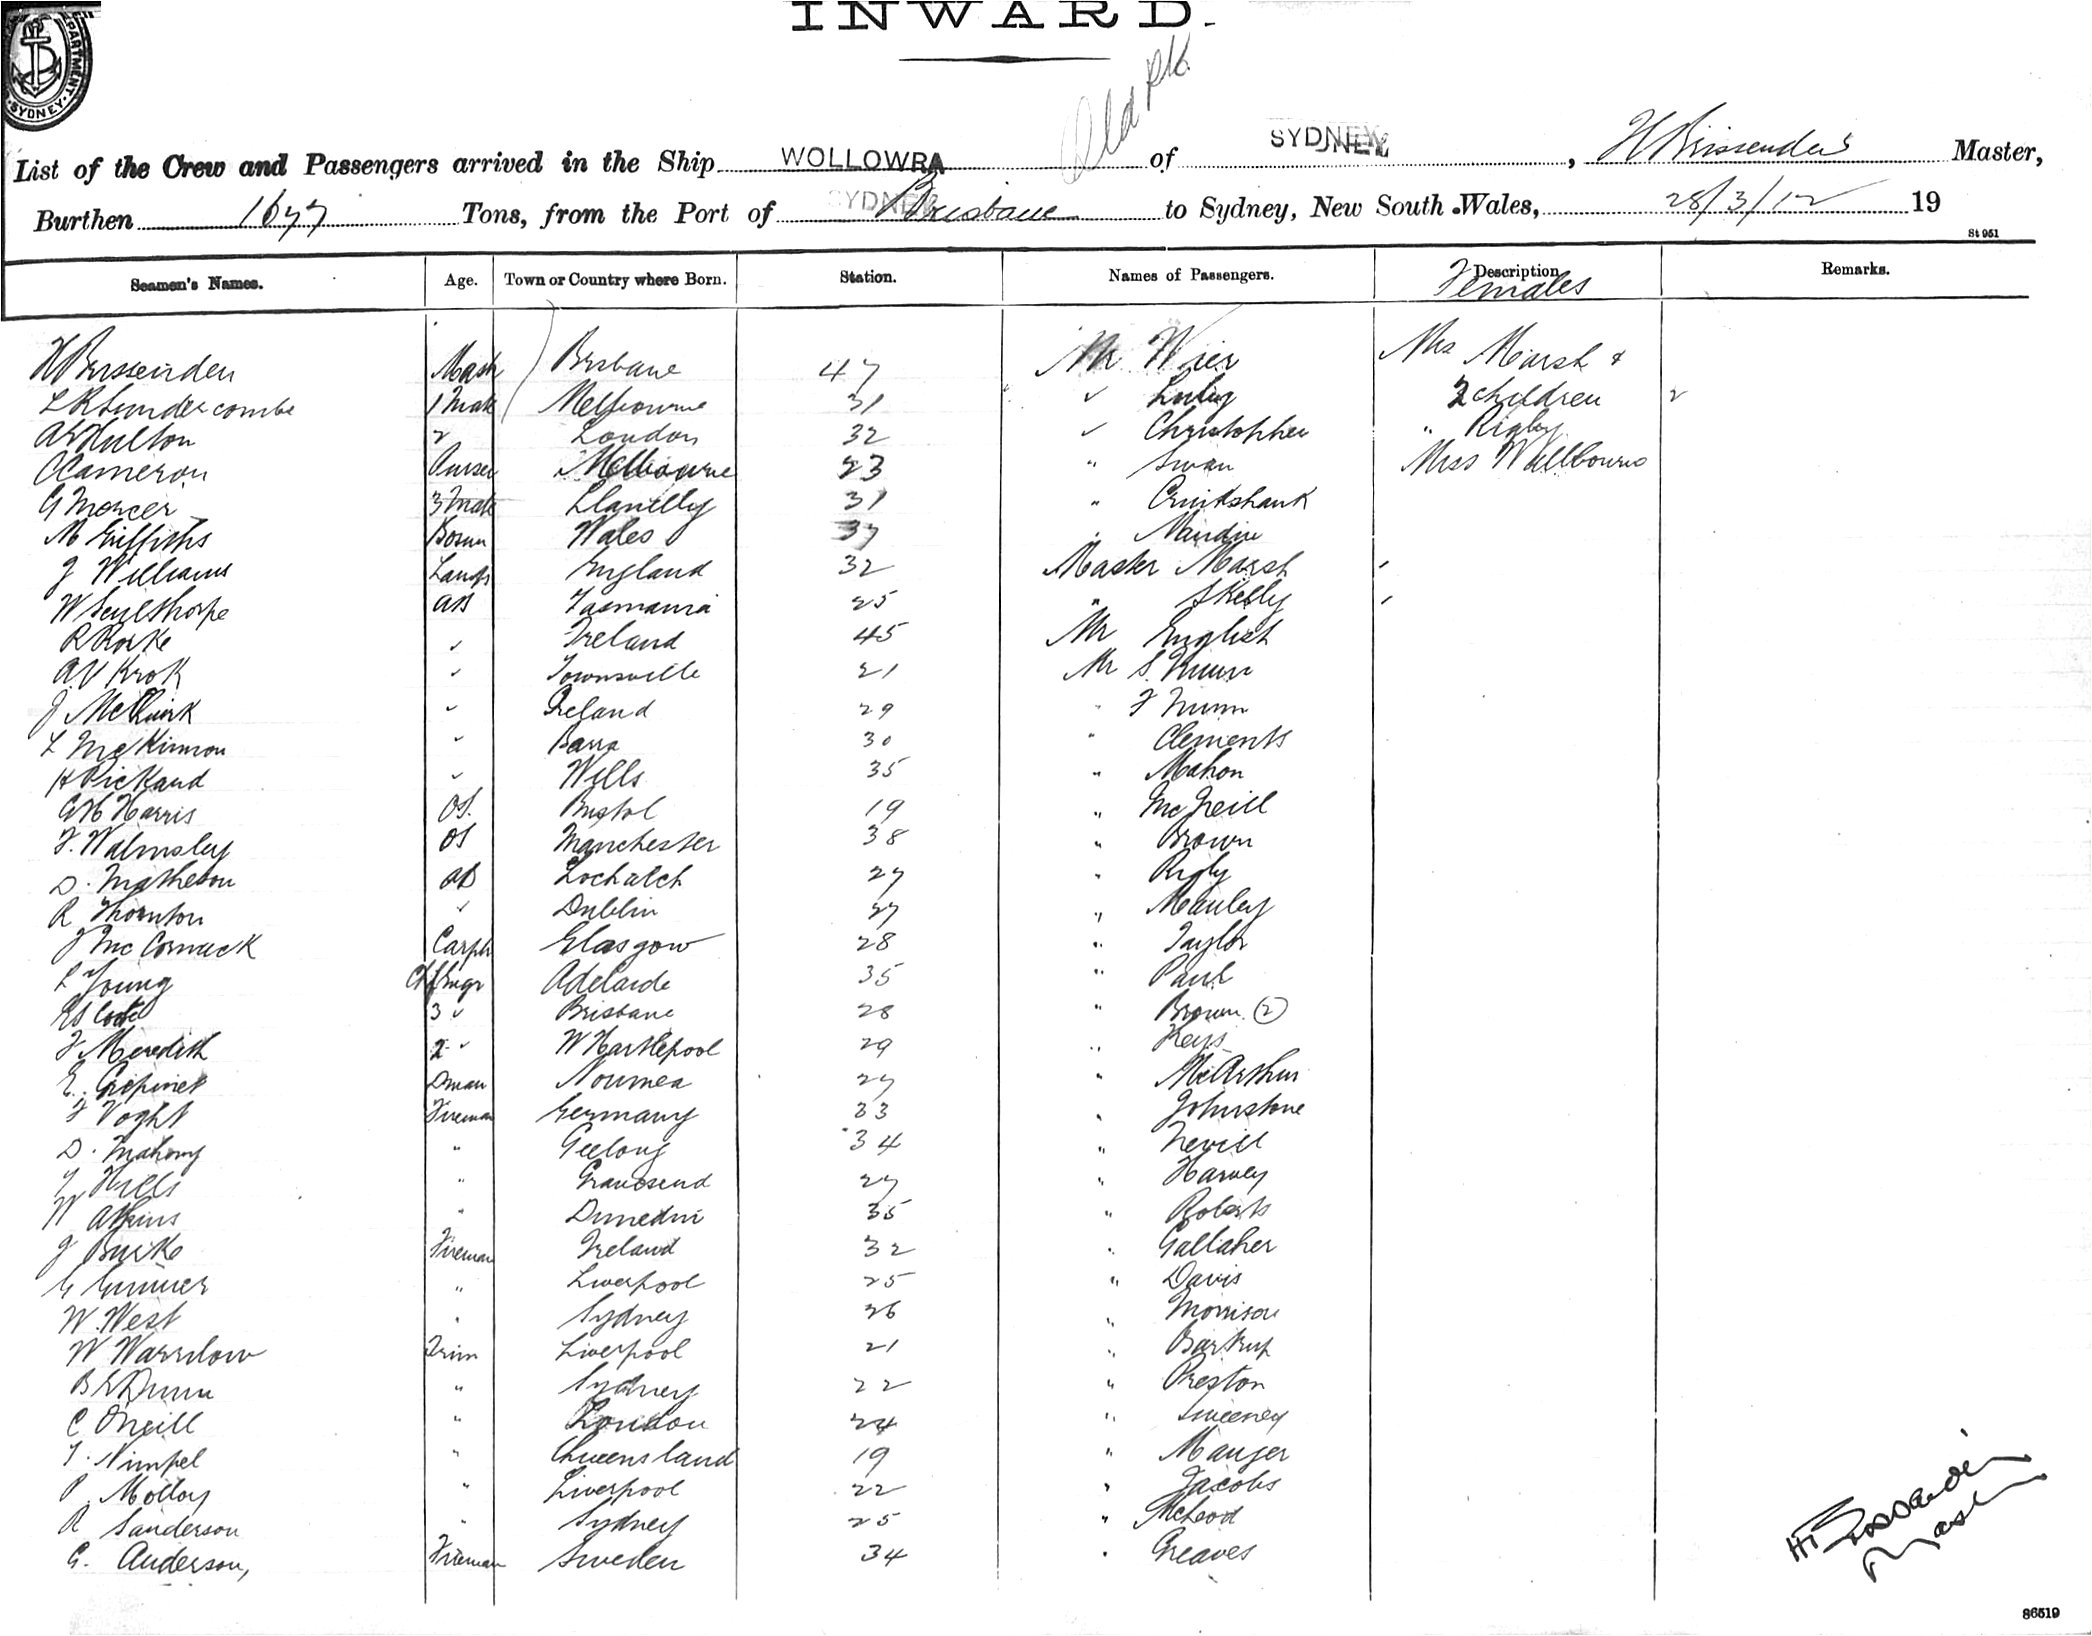 INWARD.
DEPARTMENT. SYDNEY.
List of the Crew and Passengers arrived in the Ship WOLLOWRA of SYDNEY, H Brissenden Master,
Burthen 1677 Tons, from the Port of SYDNEY Brisbane to Sydney, New South Wales, 28/3/12 19
St 951
Seamen's Names. Age. Town or Country where Born. Station. Names of Passengers. Description Remarks.
Females
H Brissenden Mastr Brisbane 47 Mr Wier Mrs Marsh &
L R Sundercombe 1 Mate Melbourne 31 " Luby 2 children 2
A Hulton 2 London 32 " Christopher " Rigby
C Cameron Purser Melbourne 23 " Swan Miss Wellbourne
G Mercer 3 Mate Llanelly 31 " Cruikshank
M Griffiths Bosun Wales 37 " Nindin
J Williams Lamps England 32 Master Marsh
W Sculthorpe AB Tasmania 25 " Skelly
R Rorke " Ireland 45 Mr English
A V Krok " Townsville 21 Mr S. Nunn
J McQuirk " Ireland 29 " F Nunn
L McKinnon " Barra 30 " Clements
H Pickand " Wells 35 " Mahon
G H Harris OS. Bristol 19 " McNeill
F. Walmsley OS Manchester 38 " Brown
D. Matheson AB Lochalch 27 " Rigby
R Thornton " Dublin 27 " Manley
J McCormack Carptr Glasgow 28 " Taylor
L Young Chf Engr Adelaide 35 " Paul
3 " Brisbane 28 " Brown (2)
F Meredith 2 " W Hartlepool 29 " Keys
E. Dman Noumea 27 " McArthur
F Voght Fireman Germany 33 " Johnstone
D. Mahony " Geelong 34 " Nevill
J Hills " Gravesend 27 " Harvey
W Atkins " Dunedin 35 " Roberts
J Burke Fireman Ireland 32 " Gallaher
G Gunner " Liverpool 25 " Davis
W. West " Sydney 26 " Morrison
W Warrilow Trim Liverpool 21 " Bartrup
B L Dunn " Sydney 22 " Preston
C ONeill " London 24 " Sweeney
T. Nimpel " Queensland 19 " Mauger
P. Molloy " Liverpool 22 " Jacobs
R Sanderson " Sydney 25 " McLeod
G. Anderson, Fireman Sweden 34 " Greaves
H Brissenden
Master
86519